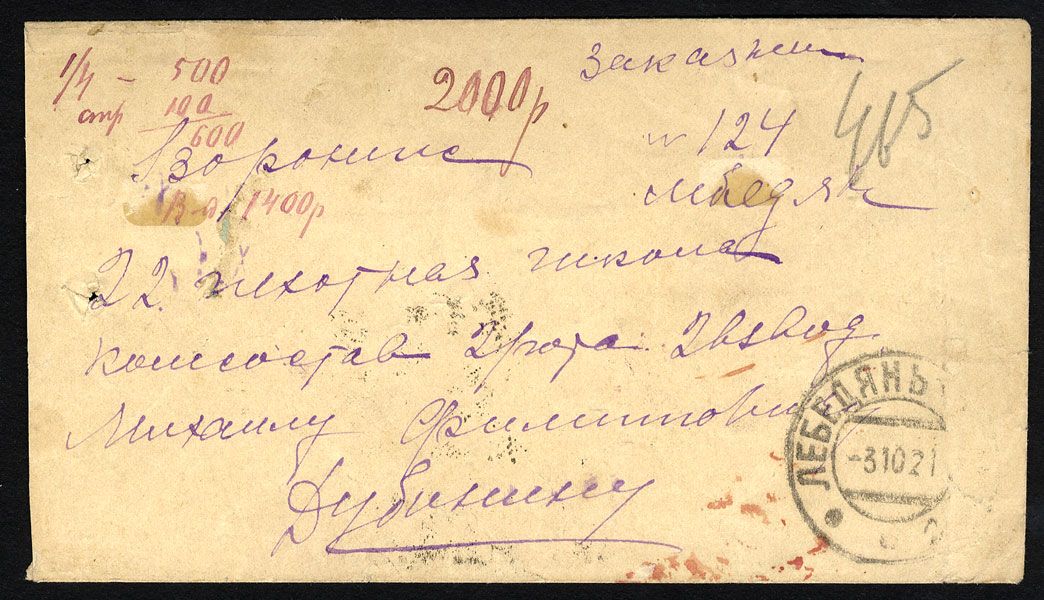 Заказн
1/4 - 500
стр 100
600
2000р
465
№ 124
лебедян
Воронеж
1400р
22. пехотная школа
комсостав 2 рота 2 взвод
Михаилу Филиппович
Дубинину
ЛЕБЕДЯНЬ
-3 10 21